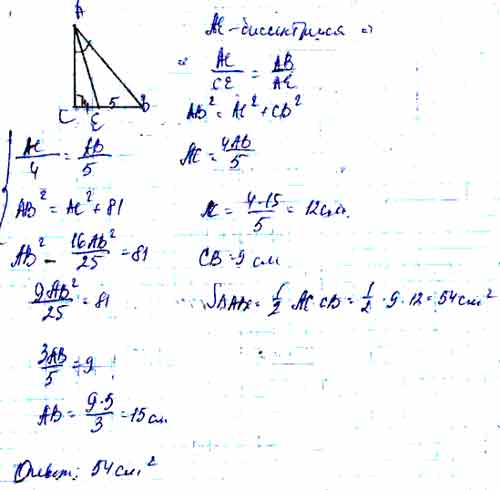 A
C 4 E 5 B
AE - биссектриса ⇒
⇒ AC/CE = AB/AE
AB² = AC² + CB²
AC/4 = AB/5
AC = 4AB/5
AB² = AC² + 81
AC = 4·15/5 = 12 см
AB² - 16AB²/25 = 81
CB = 9 см
9AB²/25 = 81
S = 1/2 AC CB = 1/2 · 9 · 12 = 54 см²
3AB/5 = 9
AB = 9·5/3 = 15 см
Ответ: 54 см²